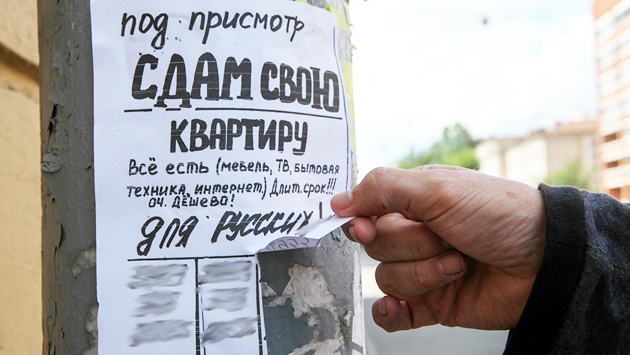 под присмотр
СДАМ СВОЮ
КВАРТИРУ
Всё есть (мебель, ТВ, бытовая
техника, интернет) Длит. срок!!!
оч. дёшево!
для русских!